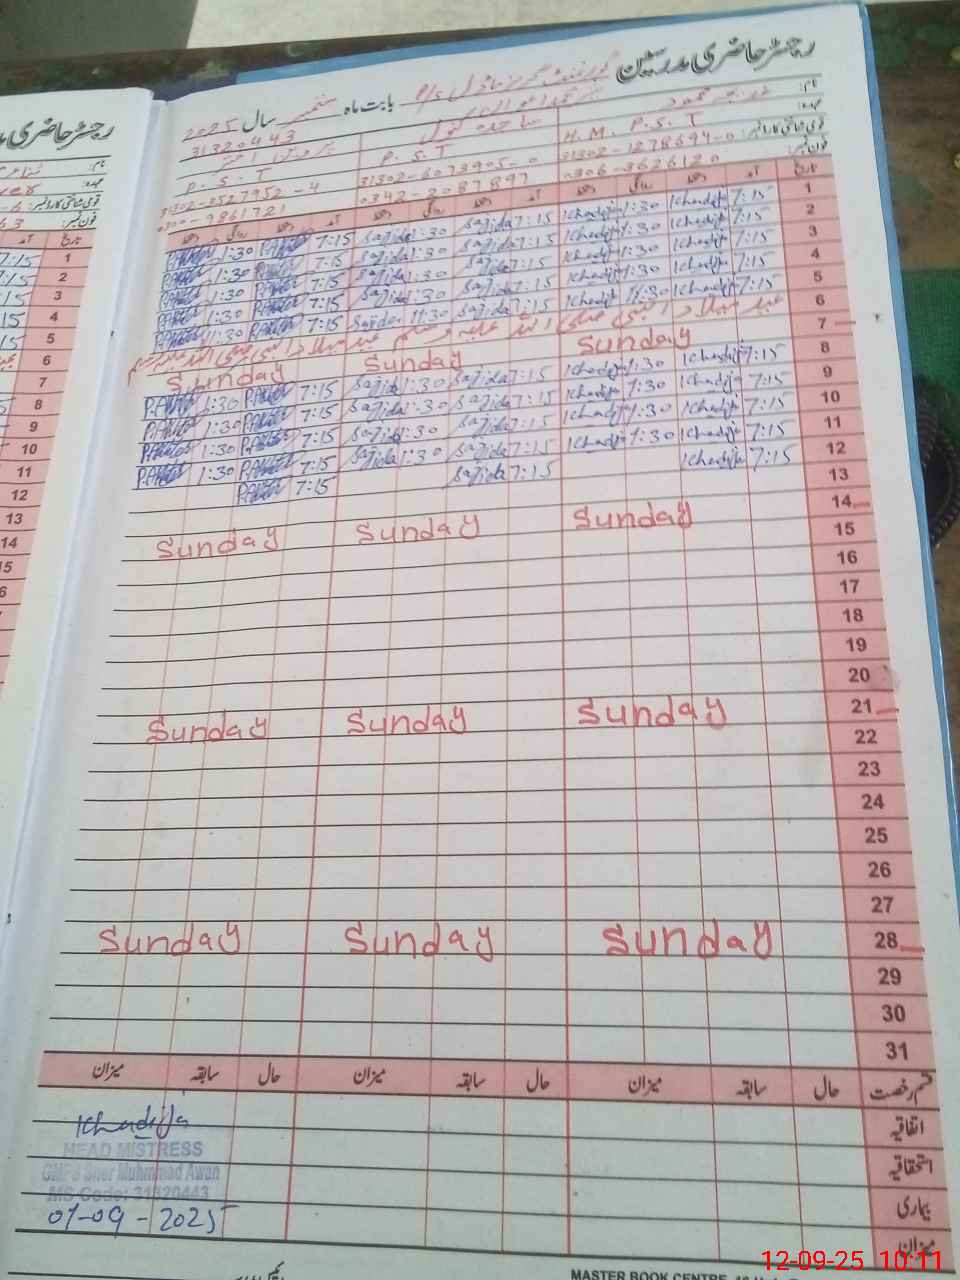 رجسٹر حاضری مدرسین گورنمنٹ گرلز ماڈل P/S بابت ماہ ستمبر سال 2025
31320443
نام: خدیجہ محمود ساجدہ بتول پروین اختر
عہدہ: H.M. P.S.T P.S.T P.S.T
قومی شناختی کارڈ نمبر: 31302-1278694-0 31302-6073905-0 31302-0527952-4
فون نمبر: 0306-3626120 0342-2087897
تاریخ آمد دستخط روانگی دستخط آمد دستخط روانگی دستخط آمد دستخط روانگی دستخط
1 7:15 Khadija 1:30 Khadija 7:15 Sajida 1:30 Sajida 7:15 1:30
2 7:15 Khadija 1:30 Khadija 7:15 Sajida 1:30 Sajida 7:15 1:30
3 7:15 Khadija 1:30 Khadija 7:15 Sajida 1:30 Sajida 7:15 1:30
4 7:15 Khadija 1:30 Khadija 7:15 Sajida 1:30 Sajida 7:15 1:30
5 7:15 Khadija 11:30 Khadija 7:15 Sajida 11:30 Sajida 7:15 11:30
6 عید میلاد النبی صلی اللہ علیہ وسلم عید میلاد النبی صلی اللہ علیہ وسلم
7 Sunday Sunday Sunday
8 7:15 Khadija 1:30 Khadija 7:15 Sajida 1:30 Sajida 7:15 1:30
9 7:15 Khadija 1:30 Khadija 7:15 Sajida 1:30 Sajida 7:15 1:30
10 7:15 Khadija 1:30 Khadija 7:15 Sajida 1:30 Sajida 7:15 1:30
11 7:15 Khadija 1:30 Khadija 7:15 Sajida 1:30 Sajida 7:15 1:30
12 7:15 Khadija 7:15 Sajida 7:15
13
14 Sunday Sunday Sunday
15
16
17
18
19
20
21 Sunday Sunday Sunday
22
23
24
25
26
27
28 Sunday Sunday Sunday
29
30
31
قسم رخصت حال سابقہ میزان حال سابقہ میزان حال سابقہ میزان
اتفاقیہ
استحقاقیہ
بیماری
میزان
Khadija
HEAD MISTRESS
GMPS Sher Muhmmad Awan
MS Code: 31320443
01-09-2025
MASTER BOOK CENTRE
12-09-25 10:11
رجسٹر حاضری
نام:
عہدہ:
قومی شناختی کارڈ نمبر:
فون نمبر:
تاریخ آمد
1 7:15
2 7:15
3 7:15
4
5
6
7
8
9
10
11
12
13
14